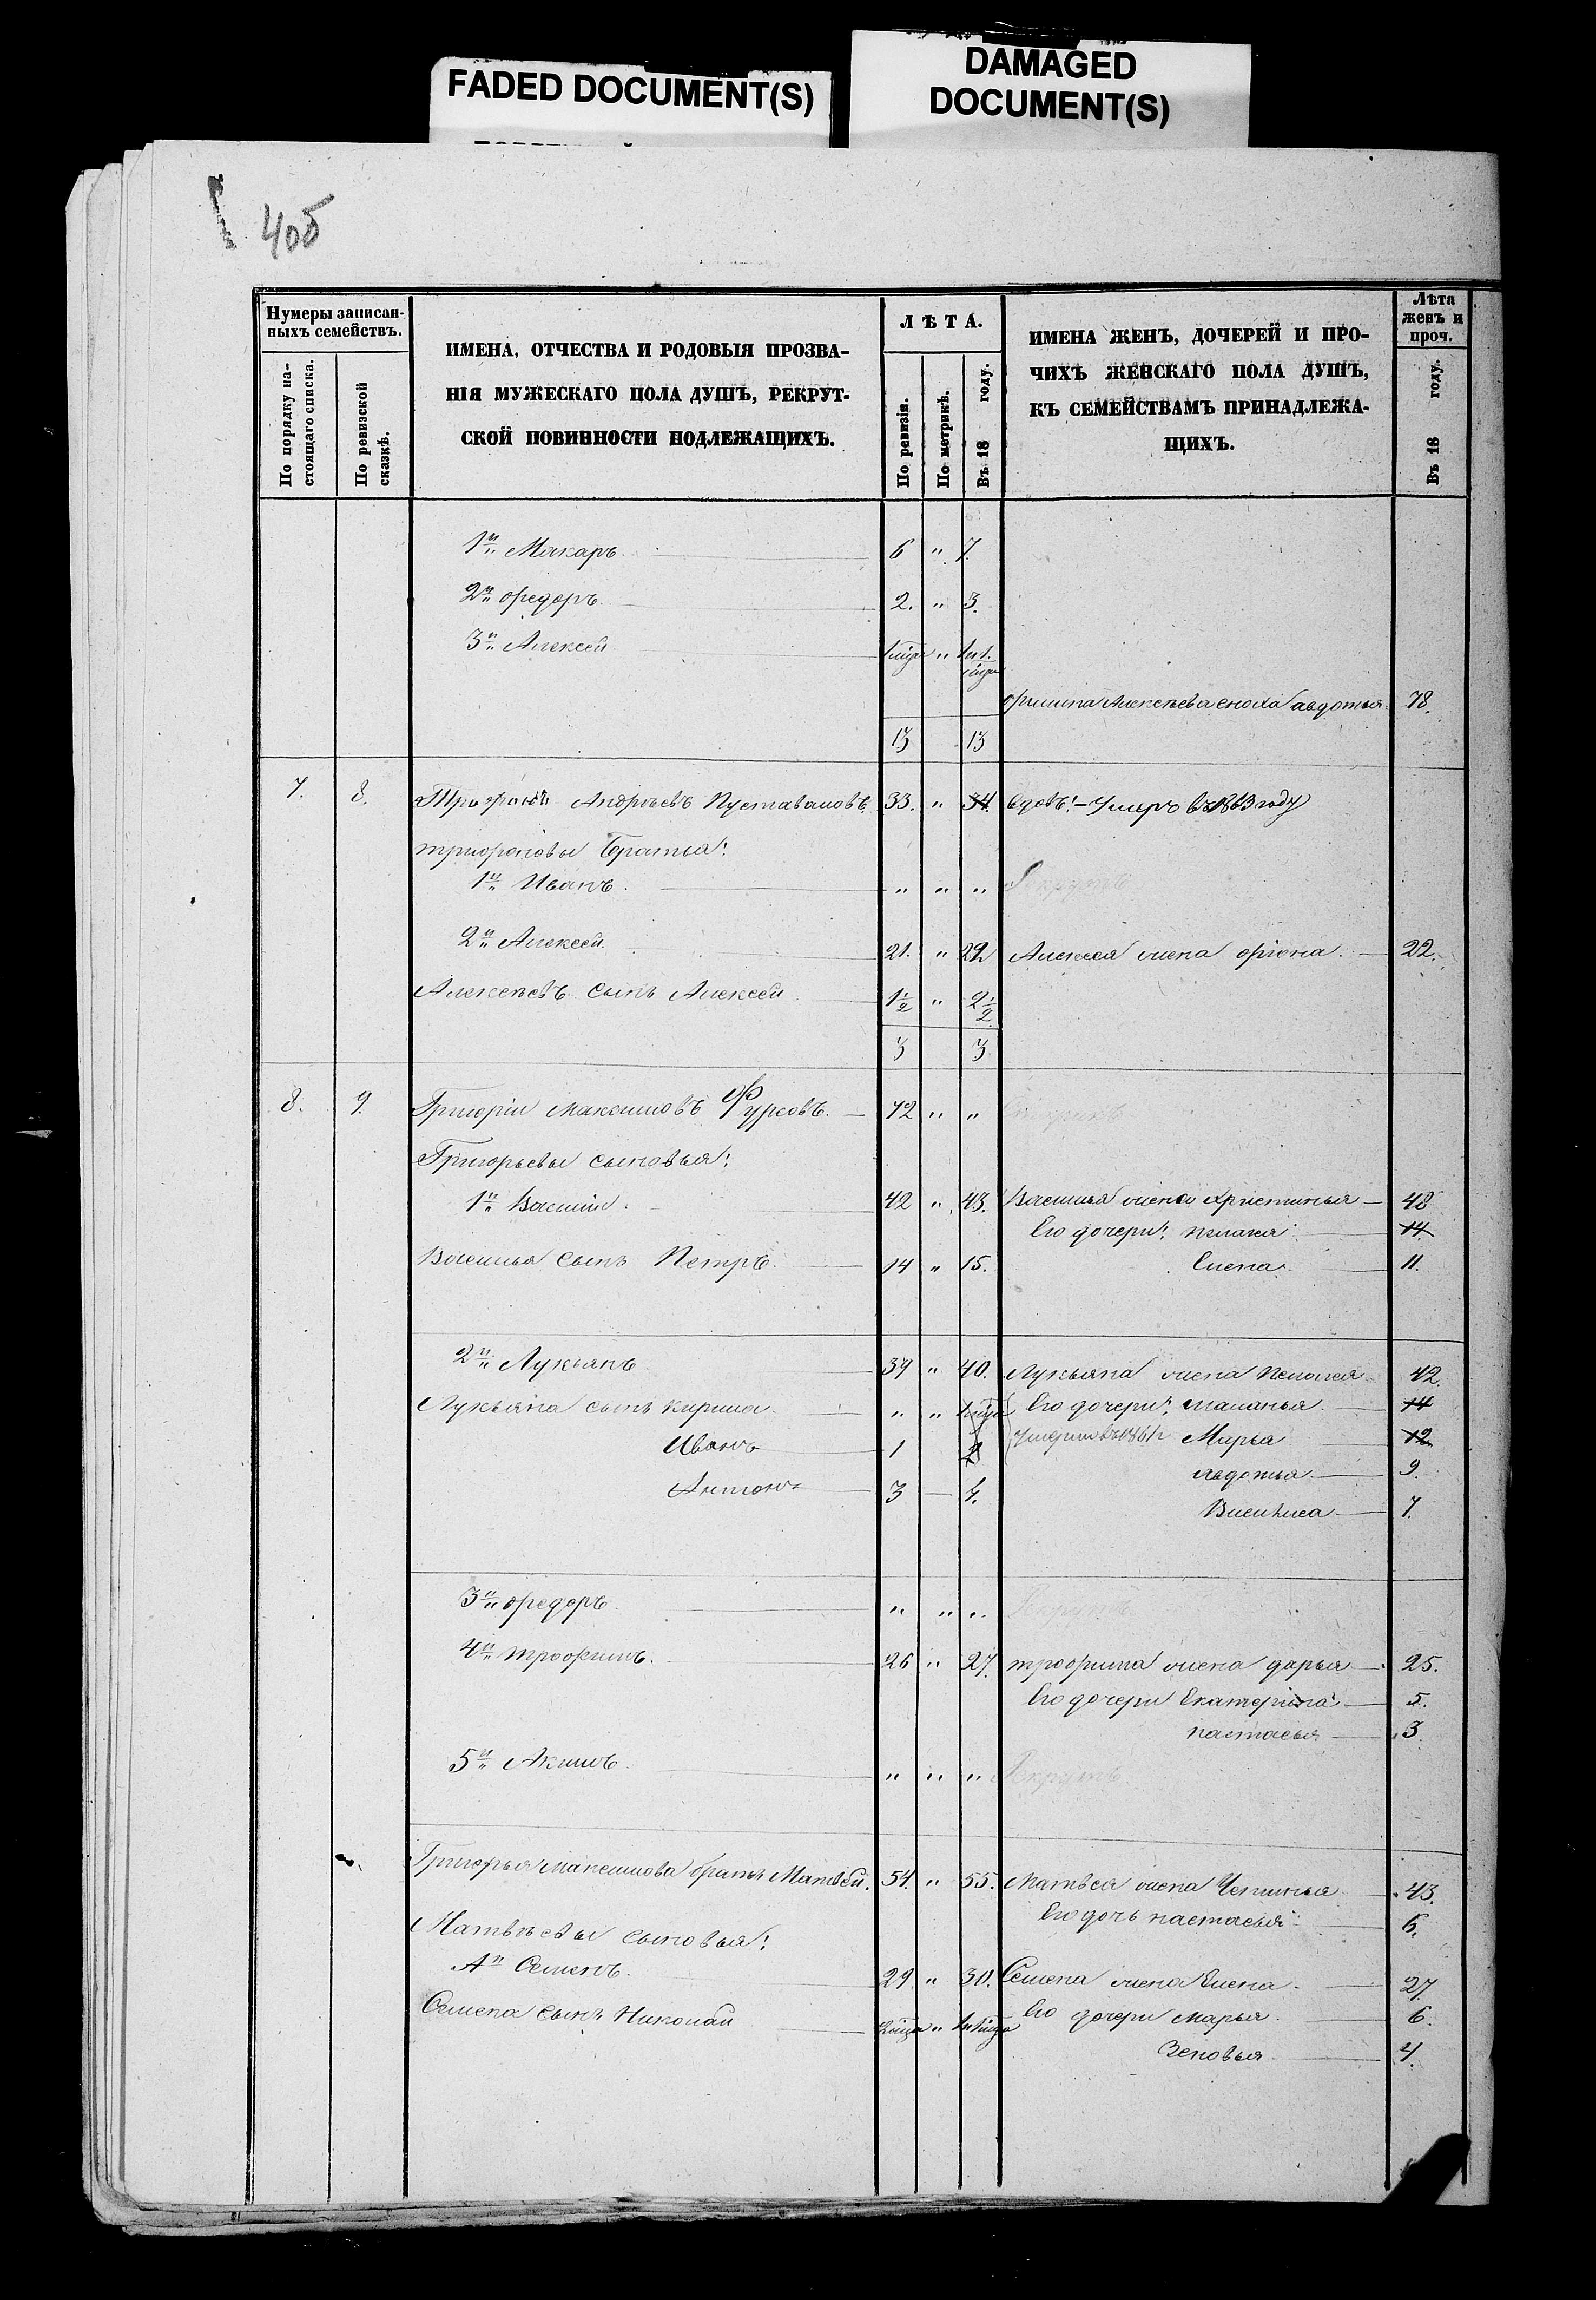 FADED DOCUMENT(S)
DAMAGED
DOCUMENT(S)
40б
Нумеры записан-
ныхъ семействъ.
По порядку на-
стоящаго списка.
По ревизской
сказкѣ.
ИМЕНА, ОТЧЕСТВА И РОДОВЫЯ ПРОЗВА-
НІЯ МУЖЕСКАГО ПОЛА ДУШЪ, РЕКРУТ-
СКОЙ ПОВИННОСТИ ПОДЛЕЖАЩИХЪ.
ЛѢТА.
По ревизіи.
По метрикѣ.
Въ 18 году.
ИМЕНА ЖЕНЪ, ДОЧЕРЕЙ И ПРО-
ЧИХЪ ЖЕНСКАГО ПОЛА ДУШЪ,
КЪ СЕМЕЙСТВАМЪ ПРИНАДЛЕЖА-
ЩИХЪ.
Лѣта
женъ и
проч.
Въ 18 году.
1й Макаръ 6 " 7.
2й Федоръ 2. " 3.
3й Алексей "
Алексѣева сноха авдотья 78.
13 13
7. 8. Трофимъ Андреевъ 33. " 34. вдовъ! - Умеръ въ 1863 году
братья:
1й Иванъ. " " " Рекрутъ
2й Алексей 21. " 22 Алексея жена 22.
Алексѣевъ сынъ Алексей 1½ " 2½
3 3
8. 9. Григорій Максимовъ Фурсовъ. 72 " "
Григорьевы сыновья:
1й Василій. 42 " 43. Василья жена Христинья 48
Его дочери: пелагея 14
Василья сынъ Петръ 14 " 15. Елена 11.
2й Лукьянъ 39 " 40. Лукьяна жена Пелагея 42.
Лукьяна сынъ кирила " " Его дочери: маланья 14
Иванъ 1 2 умерли въ 1861 г Марья 12
Антонъ 3 — 4. Авдотья 9.
Василиса 7.
3й Федоръ " " " Рекрутъ
4й трофимъ. 26 " 27. трофима жена дарья 25.
Его дочери Екатерина 5.
настасья 3
5й Акимъ. " " " Рекрутъ
Григорья Максимова братъ Матвѣй. 54. " 55. Матвѣя жена Устинья 43.
Его дочь настасья 6.
Матвѣевы сыновья:
1й Семенъ. 29. " 30. Семена жена Елена 27.
Семена сынъ Николай " Его дочери марья 6.
Зеновья 4.